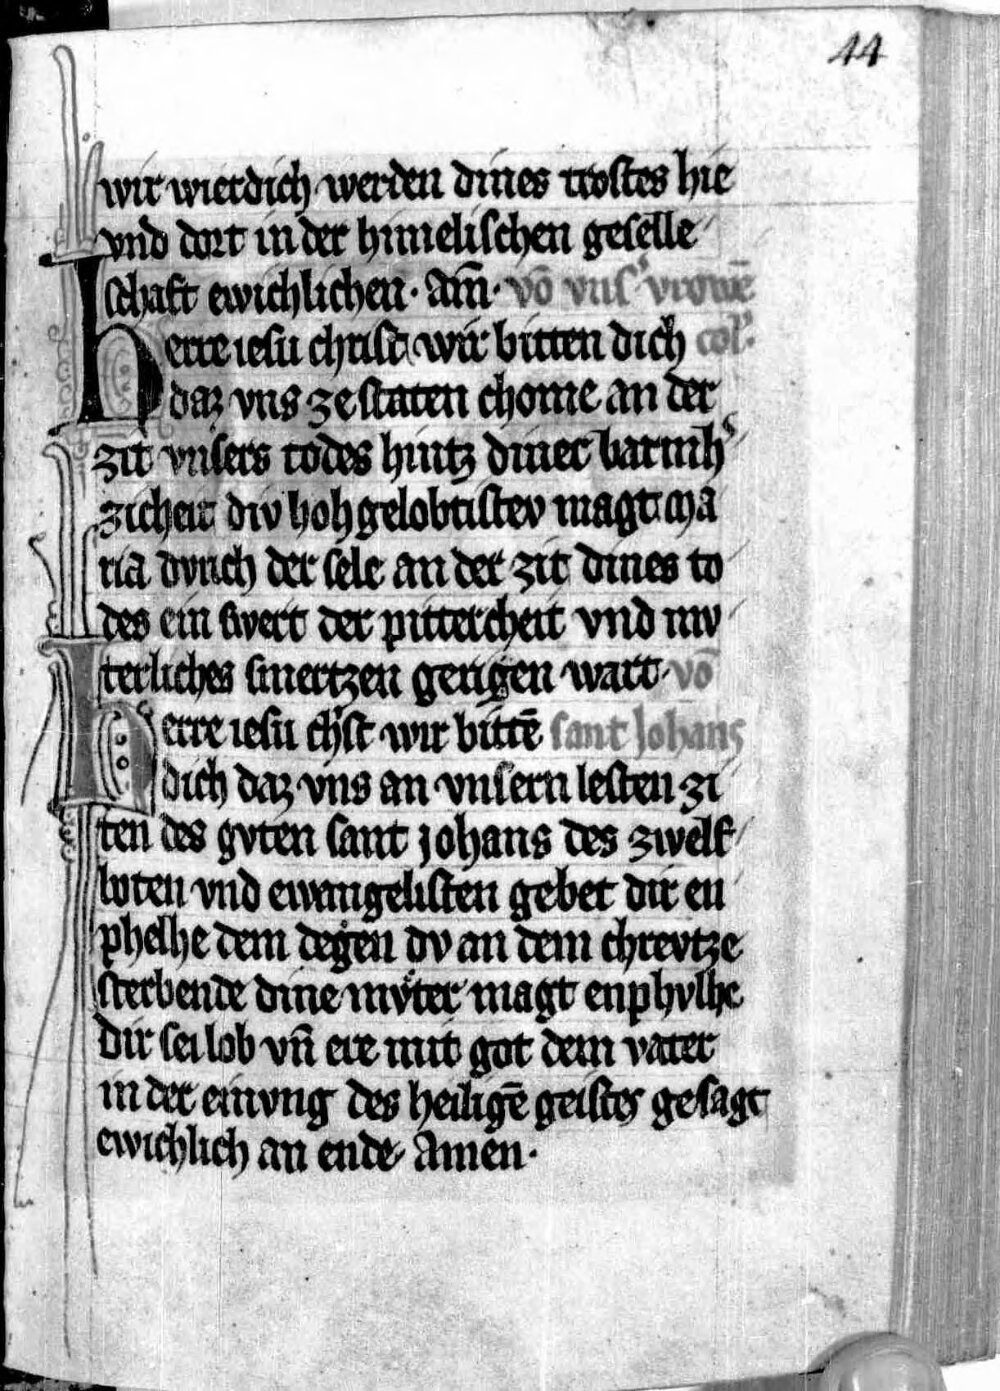 44
wir wierdich werden dines trostes hie
vnd dort in der himelischen geselle
schaft ewichlichen· am̄· vō vns̾ vrowē
Herre iesu christ wir bitten dich col̾·
daz vns ze staten chome an der
zit vnsers todes hintz diner barmh̾
zicheit div hoh gelobtistev magt ma
ria dvrich der sele an der zit dines to
des ein swert der pittercheit vnd mv
terliches smertzen gerigen wart vō
Herre iesu ch̾st wir bittē sant Johans
dich daz vns an vnsern lesten zi
ten des gvten sant johans des zwelf
boten vnd ewangelisten gebet dir en
phelhe dem degen dv an dem chrevtze
sterbende dine mvͦter magt enphvlhe
Dir sei lob vn̄ ere mit got dem vater
in der einvng des heiligē geistes gesagt
ewichlich an ende Amen·